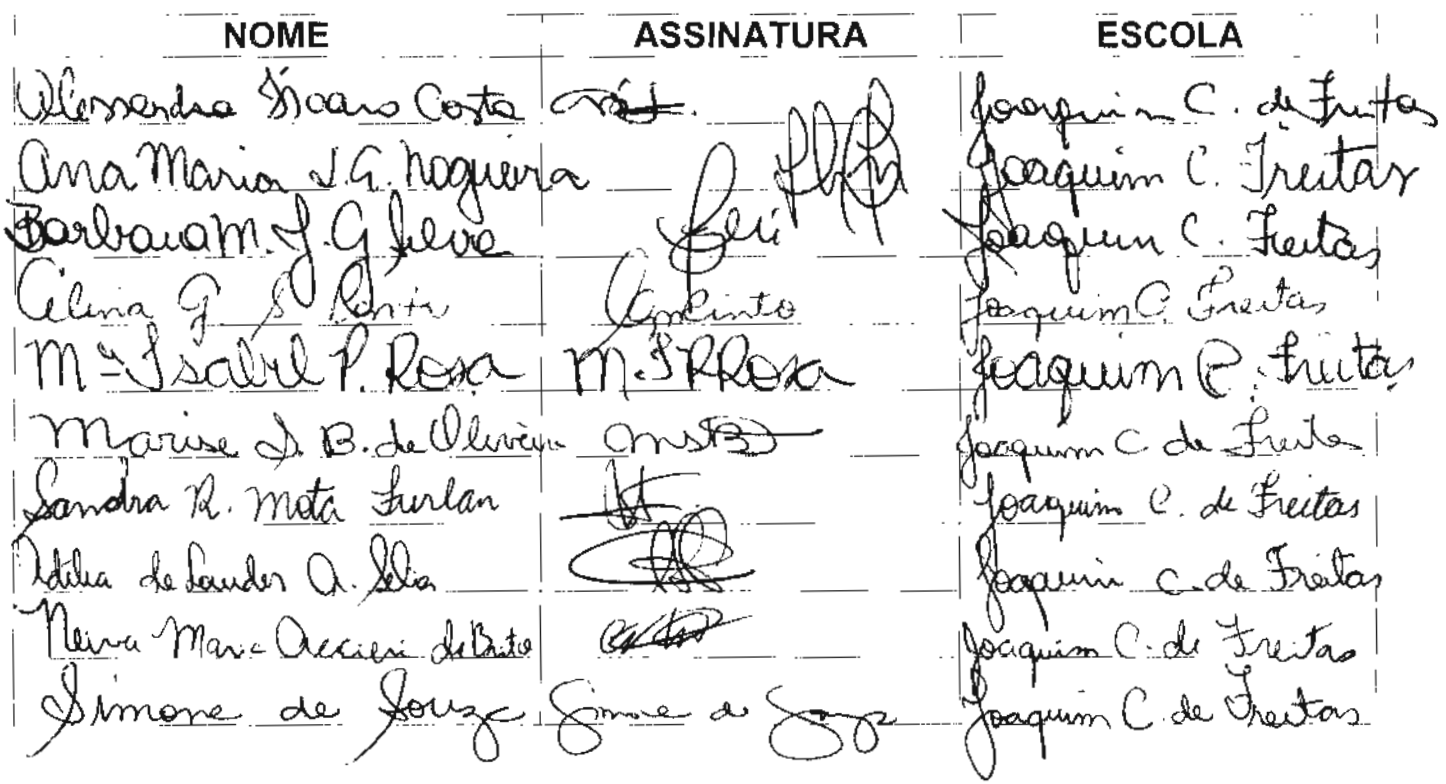 NOME ASSINATURA ESCOLA
Alessandra Isaars Costa Joaquim C. de Freitas
Ana Maria S.G. Nogueira Joaquim C. Freitas
Barbara M. J. G Silva Joaquim C. Freitas
Célina G S Pinto Joaquim C. Freitas
Mª Isabel P. Rosa M. I P Rosa Joaquim C. Freitas
Marise S. B. de Oliveira Joaquim C de Freitas
Sandra R. Mota Furlan Joaquim C. de Freitas
de Lourdes A. Joaquim C. de Freitas
Neiva Maria de Brito Joaquim C. de Freitas
Simone de Souza Simone de Souza Joaquim C. de Freitas